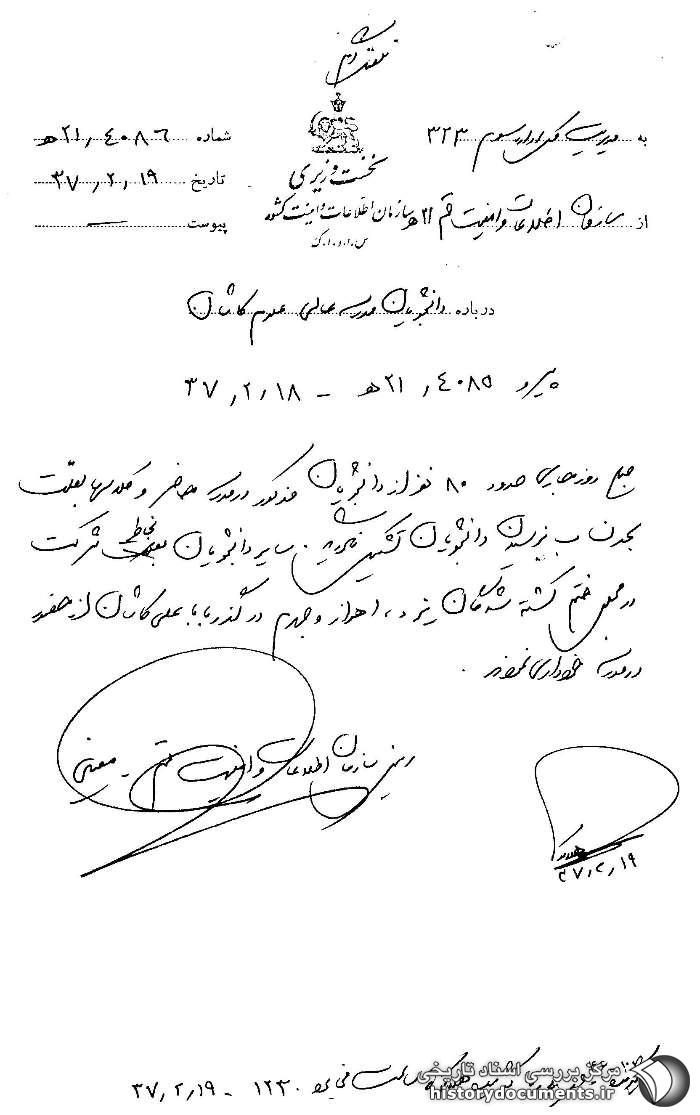 به مدیریت کل اداره سوم ۳۲۳
شماره ۲۱٫۴۰۸۶ هـ
نخست وزیری
تاریخ ۳۷٫۲٫۱۹
از سازمان اطلاعات و امنیت قم ۲۱ هـ
سازمان اطلاعات و امنیت کشور
پیوست —
س.ا.و.ا.ک
درباره دانشجویان مدرسه عالی علوم کاشان
پیرو ۲۱٫۴۰۸۵ هـ - ۳۷٫۲٫۱۸
صبح روز جاری حدود ۸۰ نفر از دانشجویان مذکور در مدرسه حاضر و کلاسها بعلت
بحد نصاب نرسیدن دانشجویان تشکیل نگردید. سایر دانشجویان بخاطر شرکت
در مجلس ختم کشته شدگان یزد، اهواز و جهرم در گذر باباعلی کاشان از حضور
در مدرسه خودداری نمودند.
رئیس سازمان اطلاعات و امنیت قم - معینی
۳۷٫۲٫۱۹
ساعت ۱۲۳۰ - ۳۷٫۲٫۱۹
مرکز بررسی اسناد تاریخی
historydocuments.ir